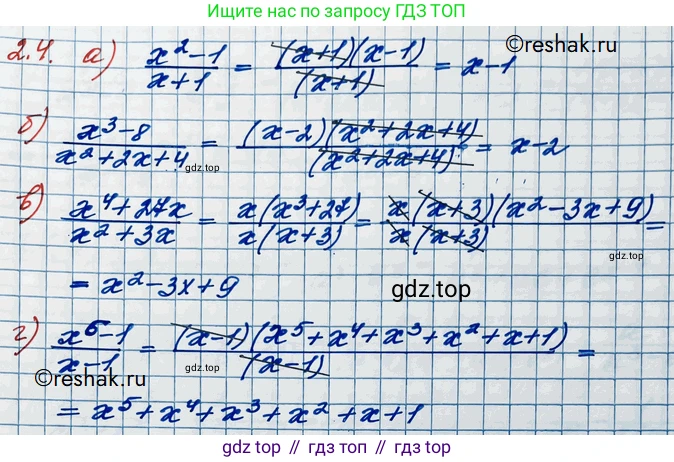 Ищите нас по запросу ГДЗ ТОП
2.4. а) (x²-1)/(x+1) = ((x+1)(x-1))/((x+1)) = x-1
©reshak.ru
б) (x³-8)/(x²+2x+4) = ((x-2)(x²+2x+4))/((x²+2x+4)) = x-2
гдз.top гдз.top
в) (x⁴+27x)/(x²+3x) = (x(x³+27))/(x(x+3)) = (x(x+3)(x²-3x+9))/(x(x+3)) =
гдз.top
= x²-3x+9
гдз.top
г) (x⁶-1)/(x-1) = ((x-1)(x⁵+x⁴+x³+x²+x+1))/((x-1)) =
©reshak.ru гдз.top
= x⁵+x⁴+x³+x²+x+1
gdz.top // гдз.топ // гдз.top